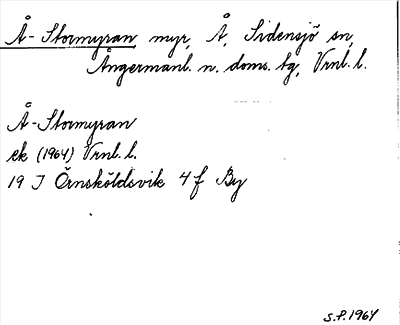 Å-Stormyran, myr, Å, Sidensjö sn,
Ångermanl. n. doms. tg, Vrnl. l.
Å-Stormyran
ek (1964) Vrnl. l.
19 J Örnsköldsvik 4 f By
S.P. 1964